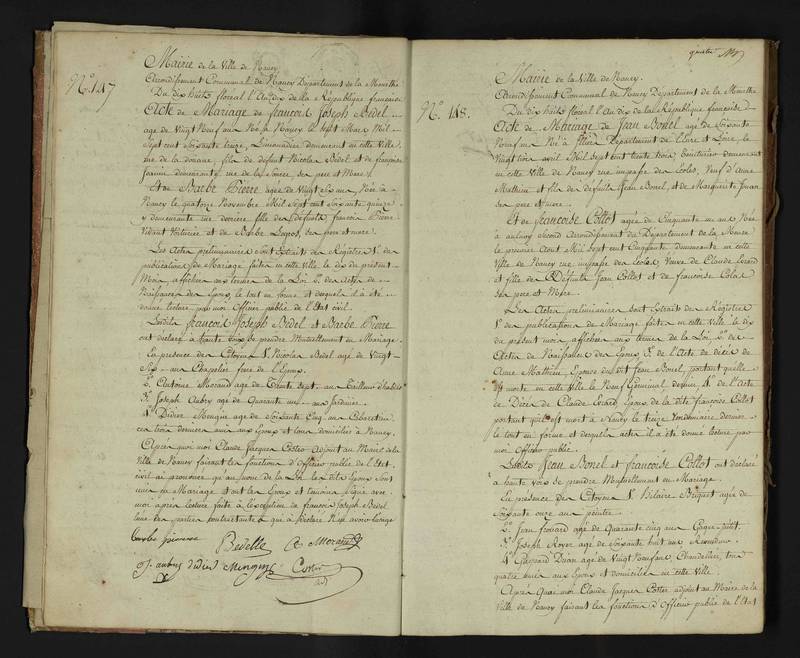 N.º 147
Mairie de la Ville de Nancy
Arrondissement Communal de Nancy Département de la Meurthe
Du dix huit floréal l'An de la République française
Acte de Mariage de françois Joseph Bedel
age de Vingt Neuf ans Né à Nancy le sept Mars Mil
Sept cent Soixante treize, Limonadier demeurant en cette Ville
rue de la douane, fils de défunt Nicolas Bedel et de françoise
demeurante rue de la Source, ses pere et Mere
Et de Barbe Pierre agée de Vingt Six ans Née à
Nancy le quatorze Novembre Mil Sept cent Soixante quinze
y demeurante rue derrière fille des Défunts francois Pierre
Vivant Voiturier et de Barbe ses pere et mere.
Les Actes préliminaires sont Extraits des Registres 1.º des
publications de Mariage faites en cette Ville, le dix du présent
Mois, affichées aux termes de la Loi 2.º des Actes de
Naissances des Epoux, le tout en forme et desquels il a été
donné lecture par moi Officier public de l'Etat civil.
Lesdits francois Joseph Bedel et Barbe Pierre
ont déclaré à haute Voix se prendre Mutuellement en Mariage.
En présence des Citoyens 1.º Nicolas Bedel agé de Vingt
Six ans Chapelier frere de l'Epoux
2.º Antoine Morand agé de Trente sept ans Tailleur d'habits
3.º Joseph Aubry agé de Quarante un ans Jardinier
4.º Didier Mengin agé de Soixante Cinq ans Cabaretier
ces trois derniers amis aux Epoux et tous domiciliés à Nancy.
Après quoi moi Claude Jacques Coster Adjoint au Maire de la
Ville de Nancy faisant les fonctions d'Officier public de l'état
civil ai prononcé qu'au nom de la Loi, les dits Epoux sont
unis en Mariage & ont les Epoux et témoins signé avec
moi après lecture faite à l'exception de francois Joseph Bedel
l'une des parties contractantes & qui a déclaré N'en avoir l'usage
Bedelle A Morand
J. aubry didier Mengin Coster
N.º 148.
Mairie de la Ville de Nancy.
Arrondissement Communal de Nancy Département de la Meurthe
Du dix huit floréal l'An dix de la République française
Acte de Mariage de Jean Bonel agé de Soixante
Neuf ans Né à Département de l'Eure et Loire, le
Vingt trois avril Mil Sept cent trente trois, demeurant
en cette Ville de Nancy rue impasse des Ecoles, Veuf d'Anne
Mathieu et fils des défunts Jean Bonel, et de Marguerite
ses pere et mere.
Et de francoise Collot agée de Cinquante un ans Née
à aulnoy Second Arrondissement du Département de la Meuse
le premier Aout Mil Sept cent Cinquante demeurante en cette
Ville de Nancy rue impasse des Ecoles, Veuve de Claude Evrard
et fille des Défunts Jean Collot et de francoise Colas
ses pere et Mere.
Les Actes préliminaires sont Extraits des Registres
1.º des publications de Mariage faites en cette Ville le dix
du présent mois, affichées aux termes de la Loi, 2.º des
Actes de Naissances des Epoux 3.º de l'Acte de décès de
Anne Mathieu, Epouse du dit Jean Bonel, portant quelle
est morte en cette Ville le Neuf Germinal dernier, 4.º de l'Acte
de Décès de Claude Evrard Epoux de la dite francoise Collot
portant qu'il est mort à Nancy le treize Vendemiaire dernier
le tout en forme et desquels actes il a été donné lecture par
moi Officier public
Lesdits Jean Bonel et francoise Collot ont déclaré
à haute voix se prendre Mutuellement en Mariage.
En présence des Citoyens 1.º Hilaire Briquet agé de
Soixante onze ans peintre
2.º Jean fouard agé de Quarante cinq ans Gagne-petit
3.º Joseph Royer agé de Soixante huit ans
4.º Gaspard Dron agé de Vingt Neuf ans Chandelier, tous
quatre amis aux Epoux et domiciliés en cette Ville
Après Quoi moi Claude Jacques Coster adjoint au Maire de la
Ville de Nancy faisant les fonctions d'Officier public de l'Etat